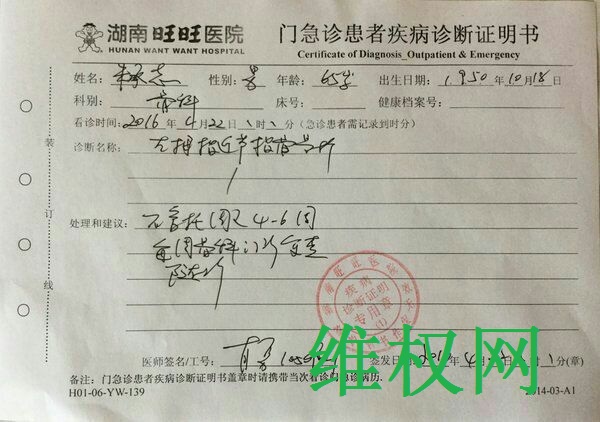 湖南旺旺医院
HUNAN WANT WANT HOSPITAL
门急诊患者疾病诊断证明书
Certificate of Diagnosis_Outpatient & Emergency
姓名: 性别: 男 年龄: 65岁 出生日期: 1950年10月18日
科别: 骨科 床号: 健康档案号:
看诊时间: 2016年4月22日 时 分 (急诊患者需记录到时分)
诊断名称: 左拇指近节指骨骨折
处理和建议: 石膏托固定4-6周
每周骨科门诊复查
随诊
装
订
线
疾病
诊断证明
专用章
(1)
医师签名/工号: 签发日期: 2016年4月 日 时 分(章)
备注: 门急诊患者疾病诊断证明书盖章时请携带当次看诊门急诊病历.
H01-06-YW-139
2014-03-A1
维权网